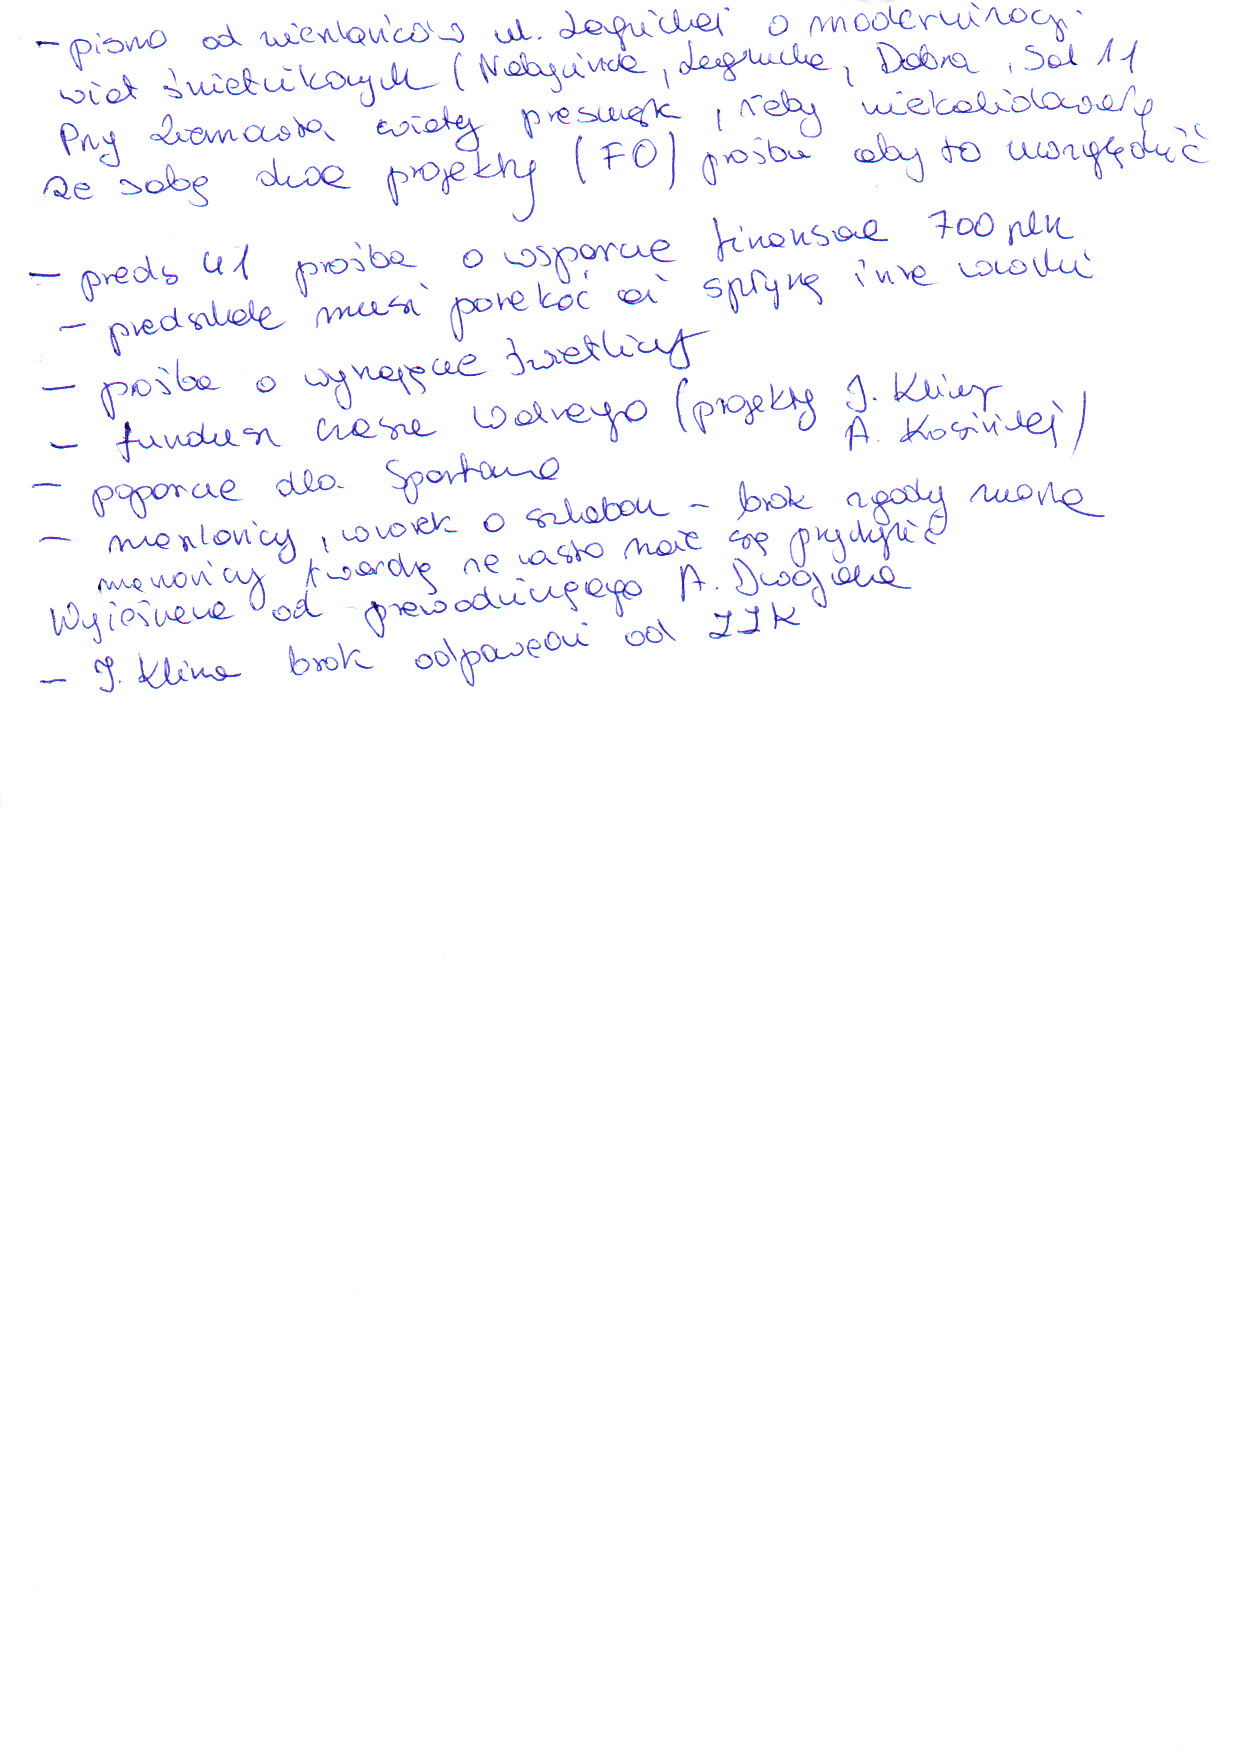 - pismo od mieszkańców ul. Legnickiej o modernizacji
wiat śmietnikowych ( Nabycińska, Legnicka, Dobra, Sok 11
Przy wiaty przesunąć, żeby niekolidowały
ze sobą dwa projekty (FO) prośba aby to uwzględnić
- przeds 41 prośba o wsparcie finansowe 700 pln
- przedszkole musi poczekać aż spłyną inne wnioski
- prośba o wynajęcie świetlicy
- fundusz czasu wolnego (projekty J. Klimy
A. Kosińskiej)
- poparcie dla Spartana
- mieszkańcy, wniosek o szlaban - brak zgody można
mieszkańcy twierdzą że miasto może się przychylić
Wyjaśnienia od przewodniczącego A. Dwojaka
- J. Klima brak odpowiedzi od ZZK